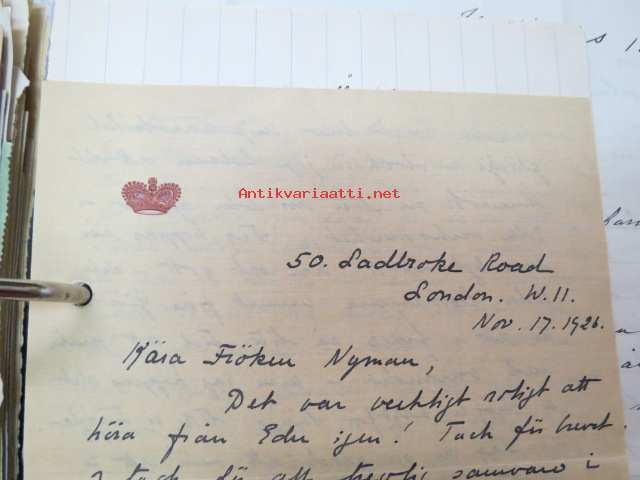 Antikvariaatti.net
50. Ladbroke Road
London. W. 11.
Nov. 17. 1926.
Kära Fröken Nyman,
Det var verkligt roligt att
höra från Eder igen! Tack för brevet
tack för att trevlig samvaro i